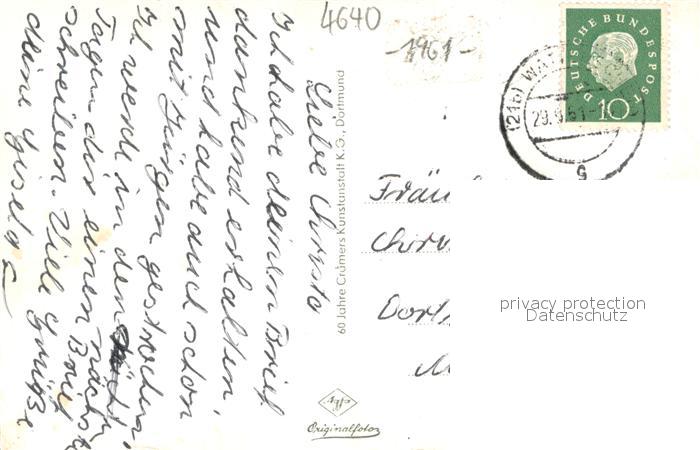 4640
-1961-
DEUTSCHE BUNDESPOST
10
(21b) WA
29.9.61-
g
Liebe Christa
Ich habe deinen Brief
dankend erhalten,
und habe auch schon
mit Jürgen gesprochen.
Ich werde in den nächsten
Tagen dir einen Brief
schreiben. Viele Grüße
deine Gisela
60 Jahre Cramers Kunstanstalt K.G., Dortmund
Agfa
Originalfoto
Fräu
Dort
privacy protection
Datenschutz